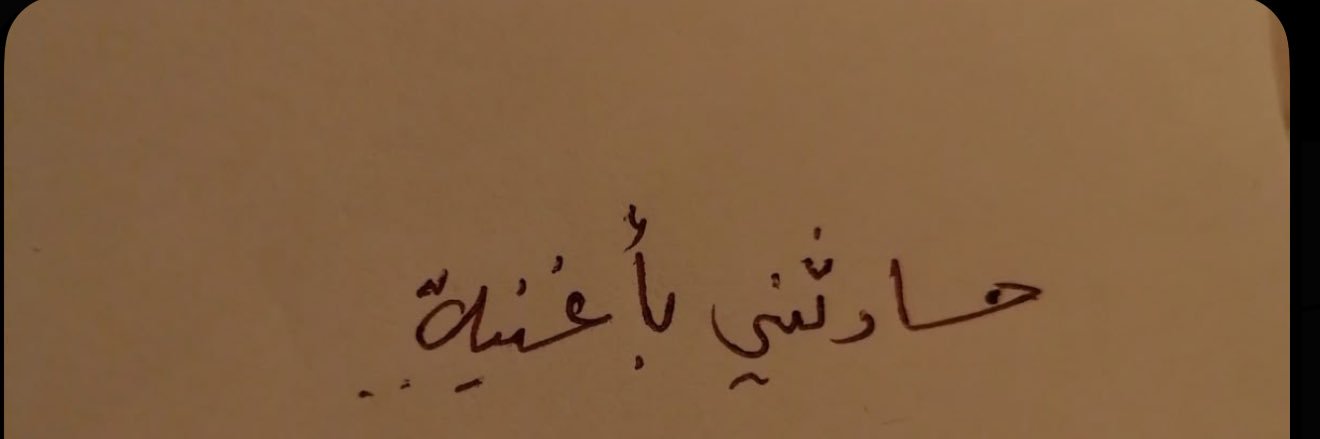 حادثني بأغنية..